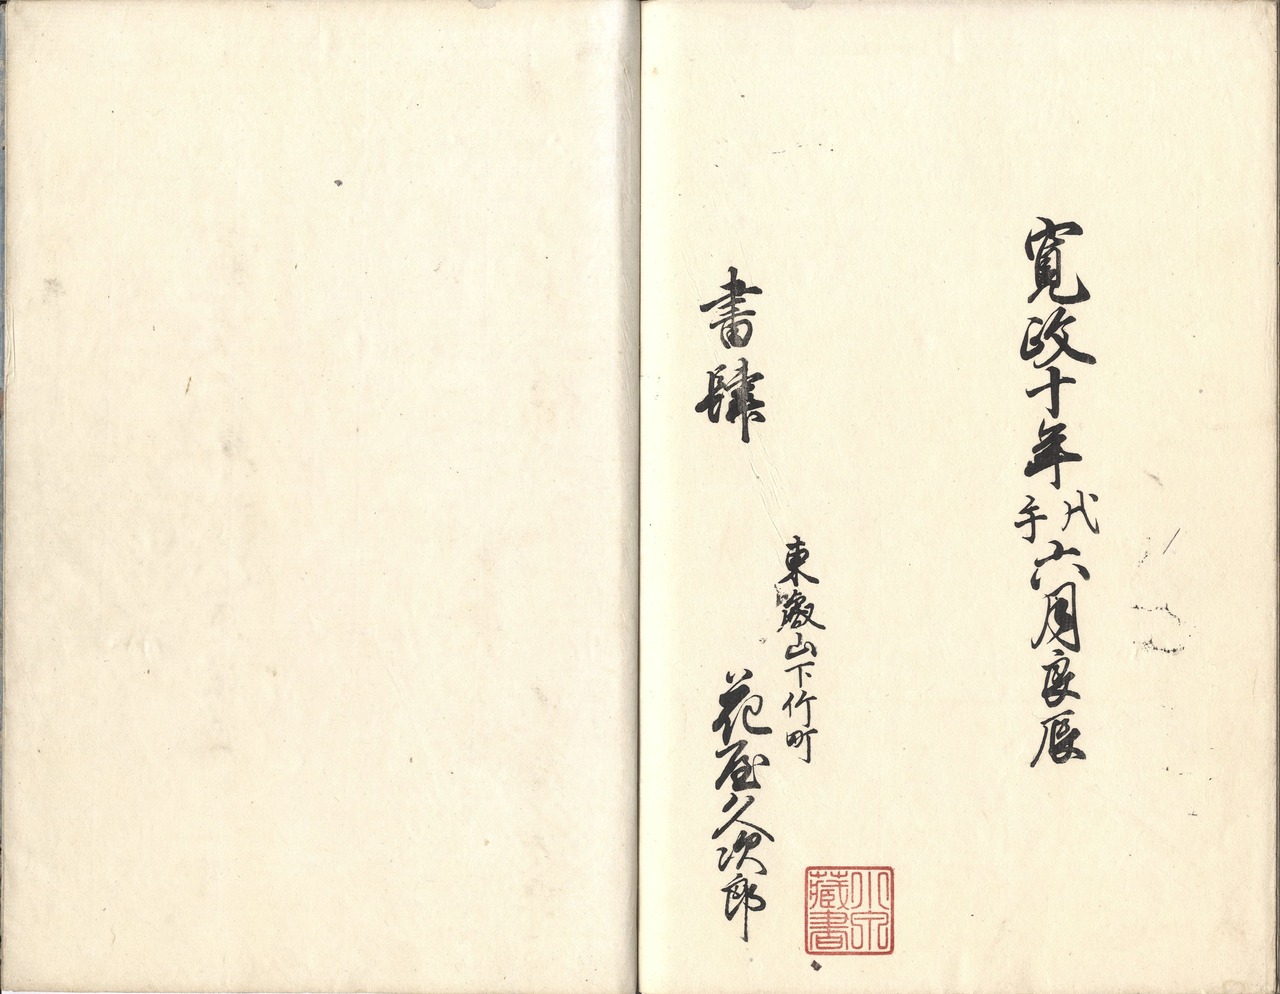 寛政十年戊午六月良辰
東叡山下竹町
書肆
花屋久次郎
小
藏書